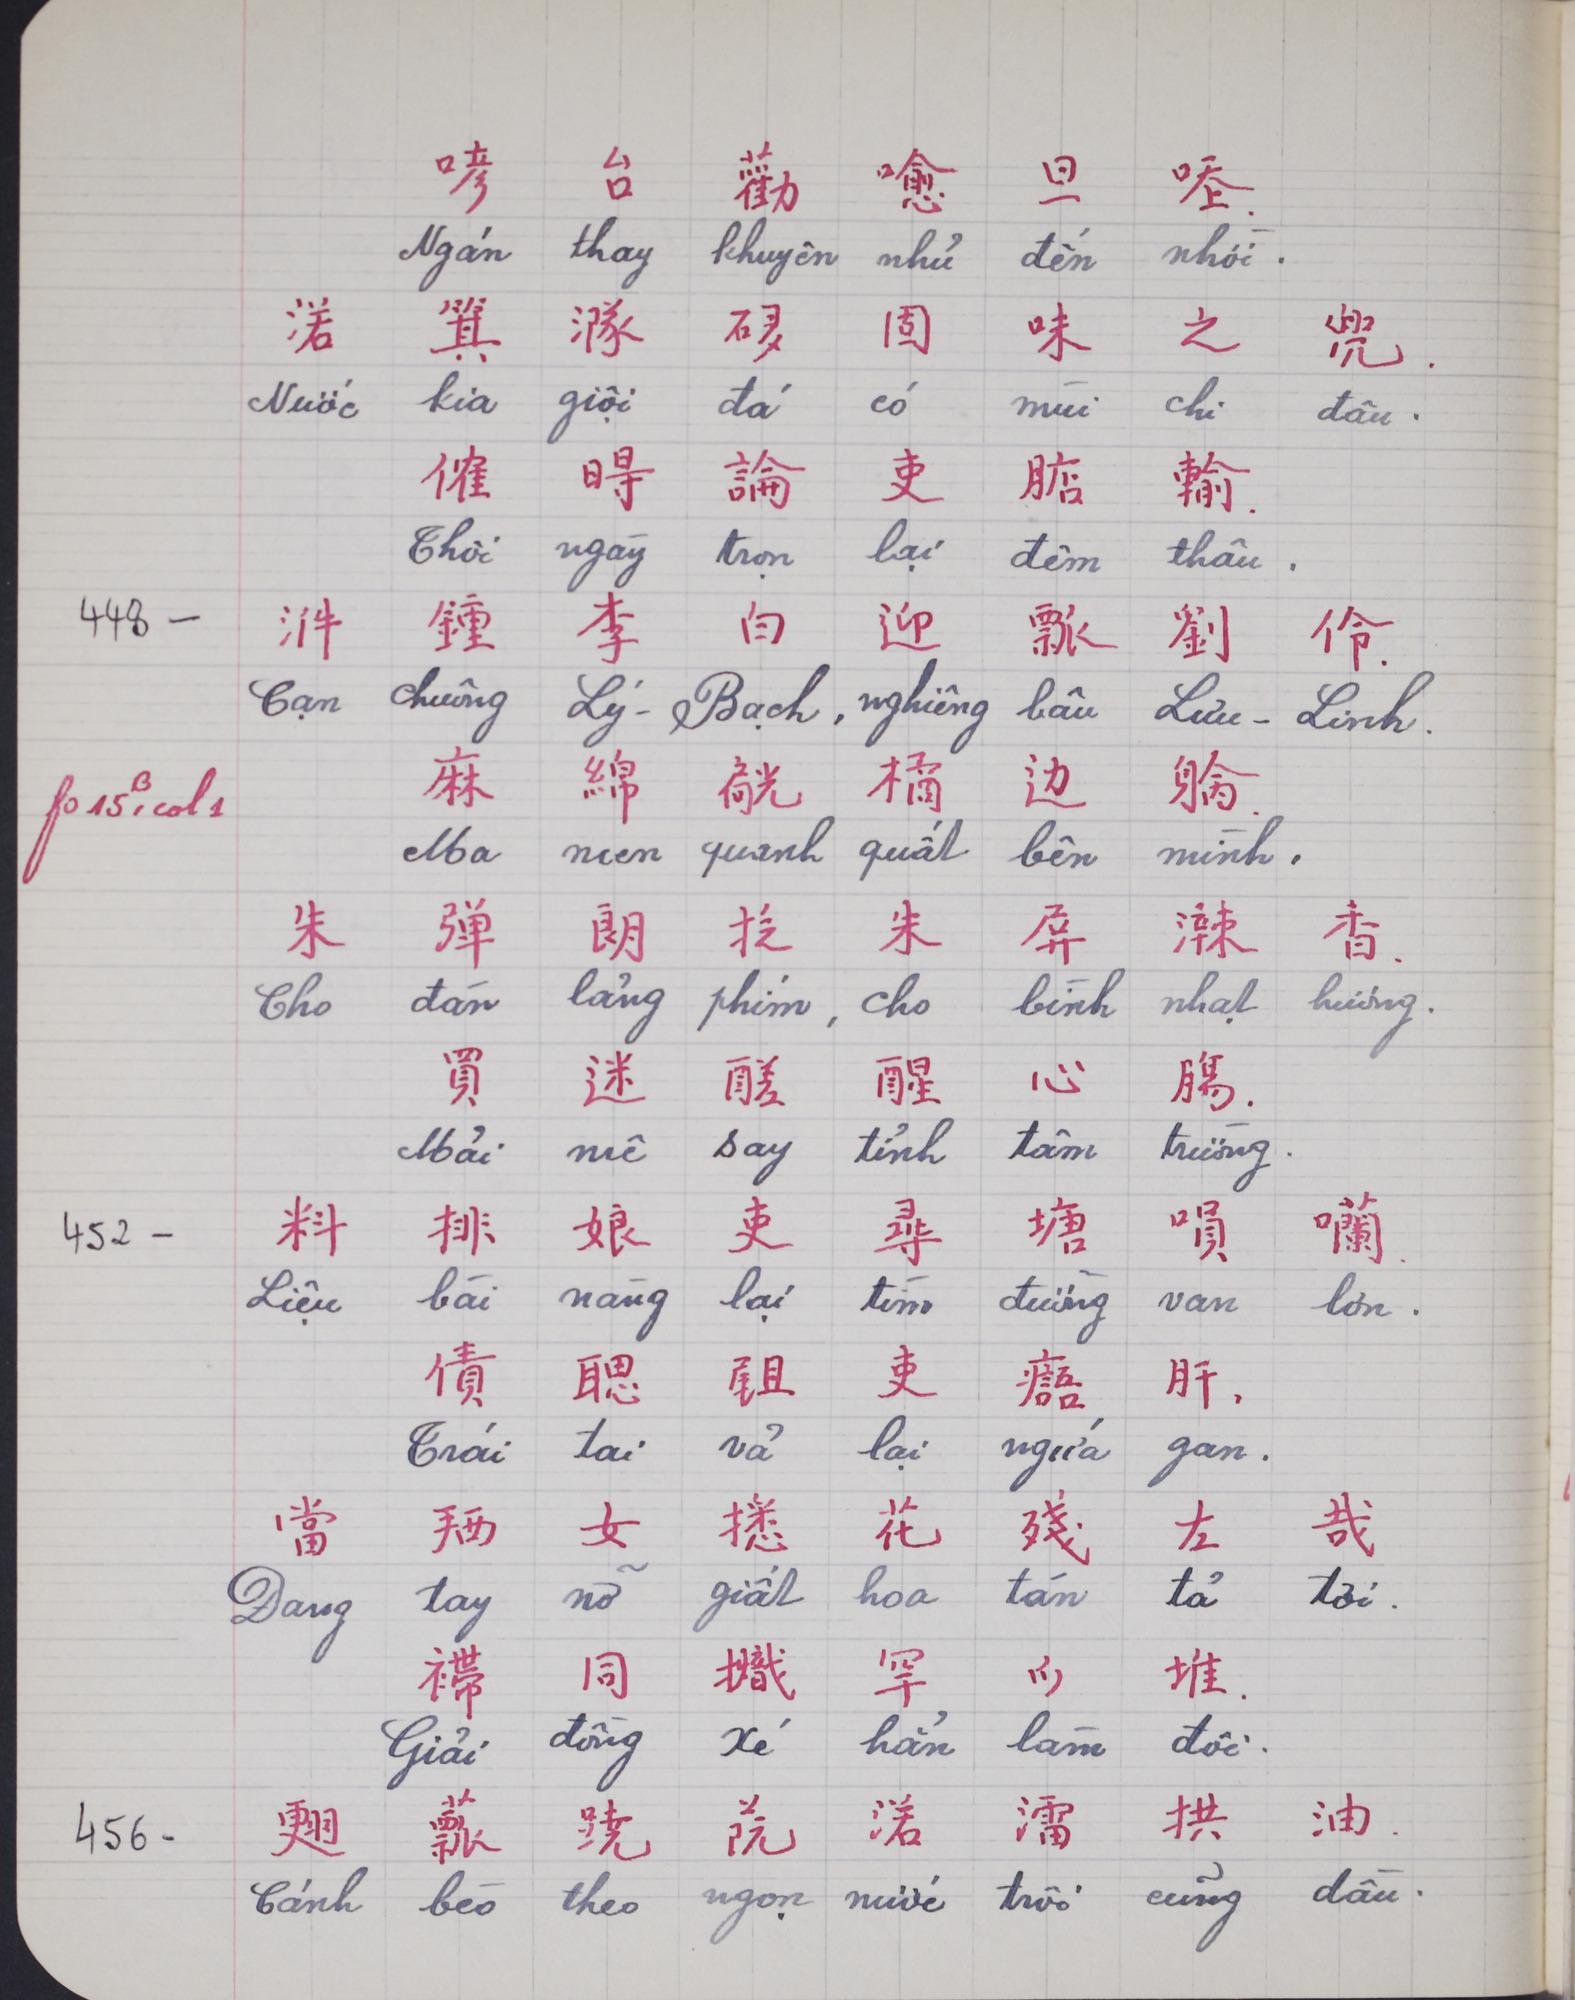 喭 台 勸 㗱 旦 𠱀.
Ngán thay khuyên nhủ đến nhời.
渃 箕 𣹕 𥒥 固 味 之 兜.
Nước kia giội đá có mùi chi đâu.
催 㝵 論 吏 𣎀 輸.
Thôi ngày trọn lại đêm thâu.
448 – 汼 鍾 李 白 迎 瓢 劉 伶.
Cạn chuông Lý-Bạch, nghiêng bầu Lưu-Linh.
麻 綿 觥 橘 边 𨉓.
fo 15ᴮ, col 1
Ma men quanh quất bên mình.
朱 弹 朗 㧋 朱 屏 辣 香.
Cho đàn lảng phím, cho bình nhạt hương.
買 迷 醝 醒 心 腸.
Mải mê say tỉnh tâm trường.
452 – 料 排 娘 吏 尋 塘 嗊 囒.
Liệu bài nàng lại tìm đường van lơn.
債 聰 𡲤 吏 𤻭 肝.
Trái tai vả lại ngứa gan.
當 𢬣 女 𢹅 花 殘 左 哉
Dang tay nỡ giắt hoa tàn tả tơi.
𧞊 同 𢷀 罕 𫜵 堆.
Giải đồng xé hẳn làm đôi.
456 – 𦑃 薸 蹺 𦰟 渃 澑 拱 油.
Cánh bèo theo ngọn nước trôi cũng dầu.